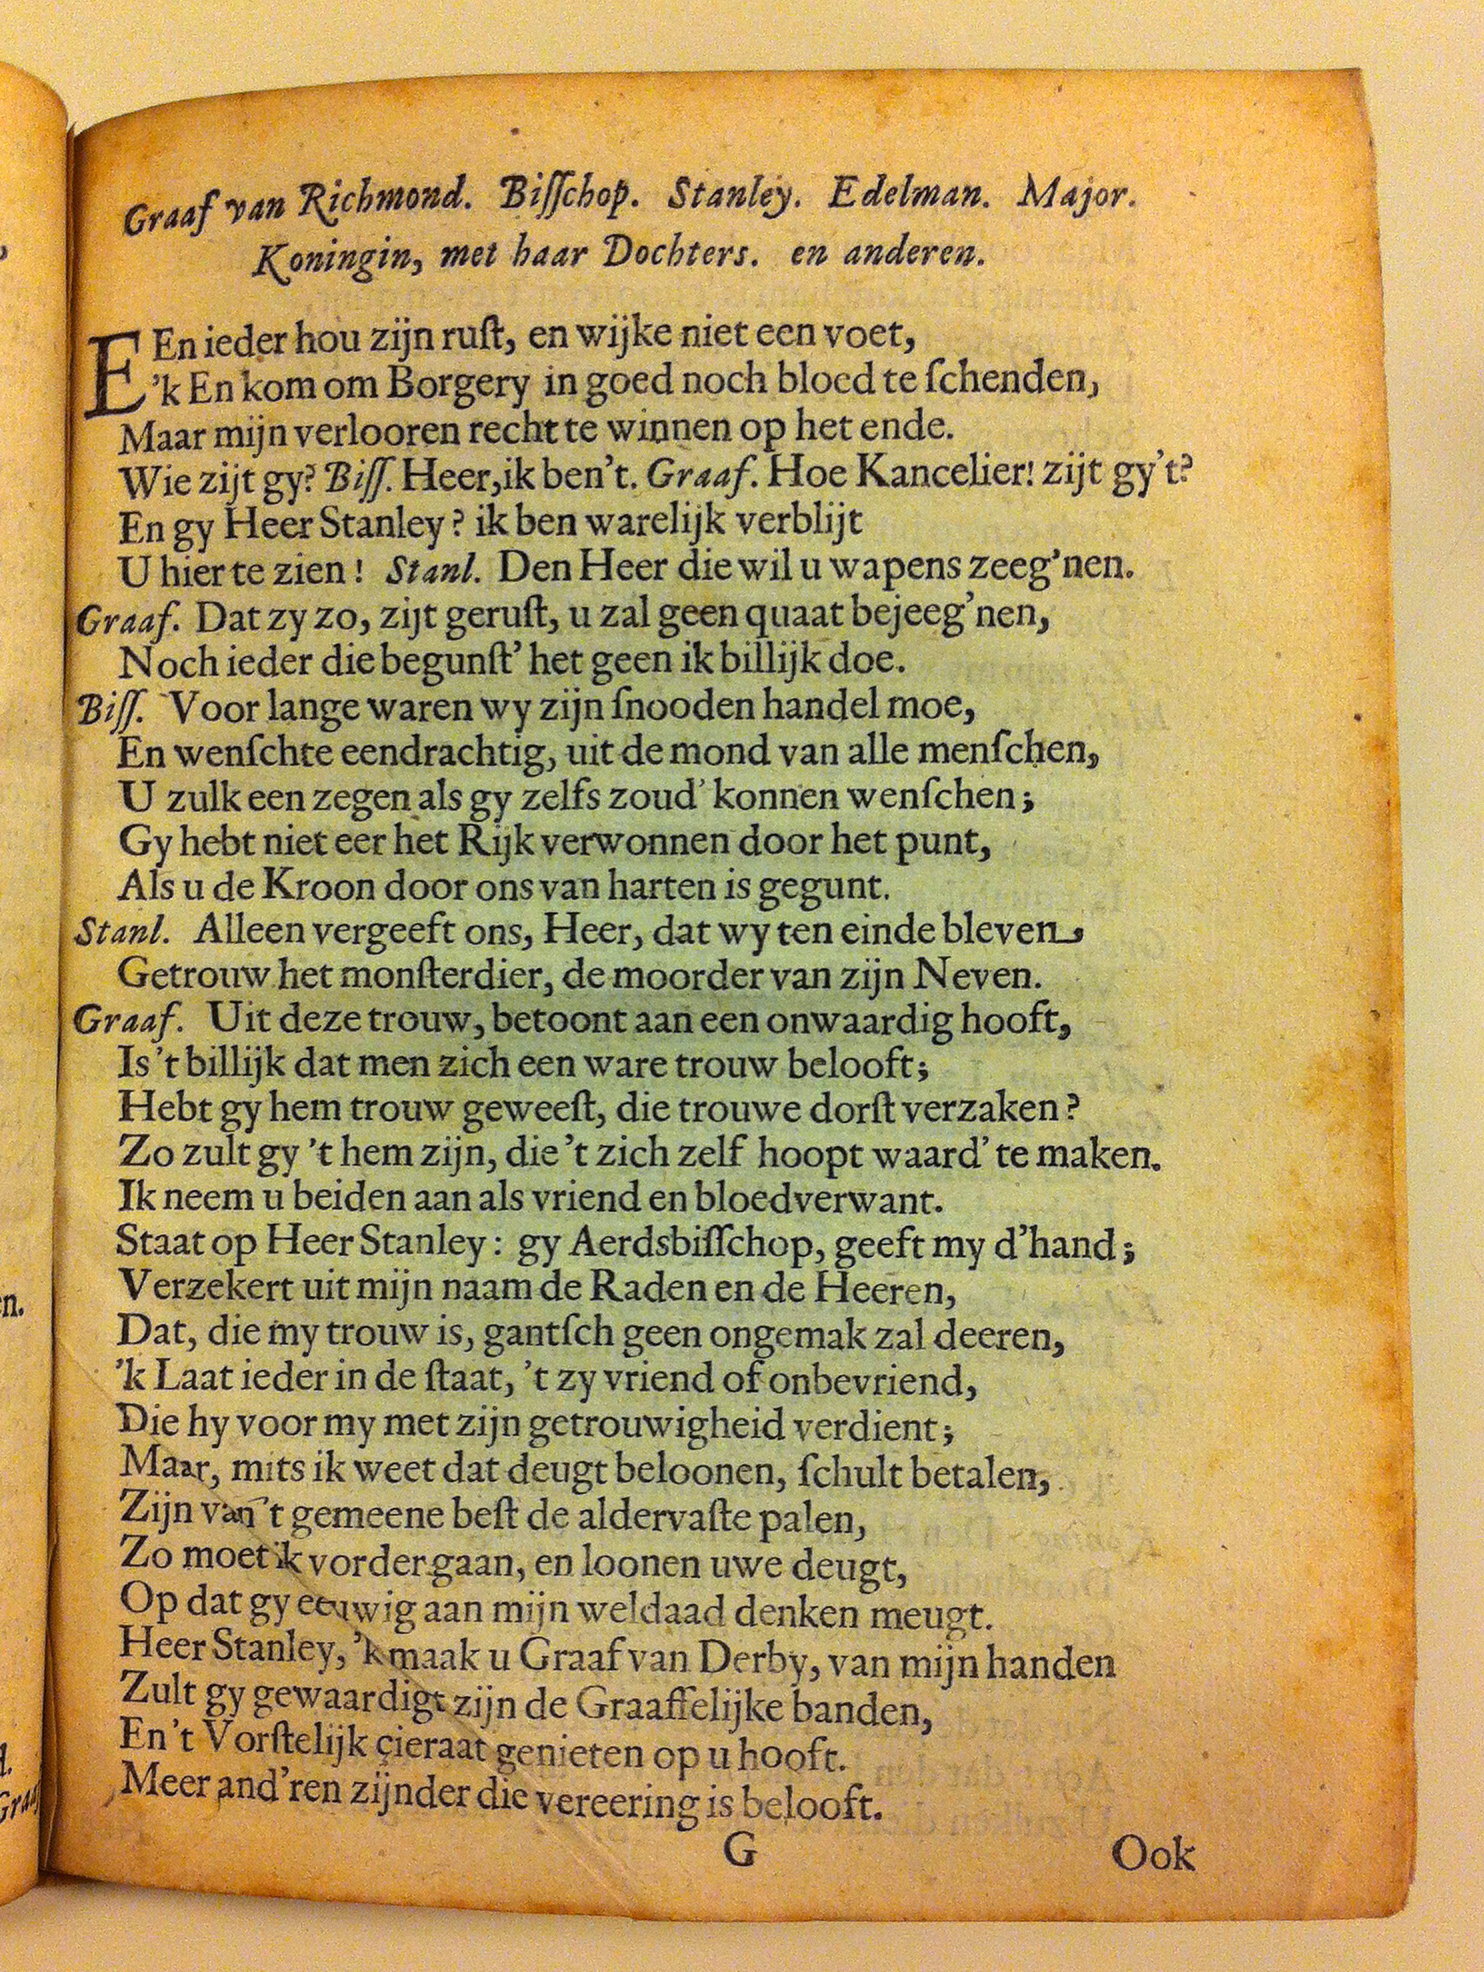 Graaf van Richmond. Biſſchop. Stanley. Edelman. Major.
Koningin, met haar Dochters. en anderen.
EEn ieder hou zijn ruſt, en wijke niet een voet,
'k En kom om Borgery in goed noch bloed te ſchenden,
Maar mijn verlooren recht te winnen op het ende.
Wie zijt gy? Biſſ. Heer, ik ben't. Graaf. Hoe Kancelier! zijt gy't?
En gy Heer Stanley? ik ben warelijk verblijt
U hier te zien! Stanl. Den Heer die wil u wapens zeeg'nen.
Graaf. Dat zy zo, zijt geruſt, u zal geen quaat bejeeg'nen,
Noch ieder die begunſt' het geen ik billijk doe.
Biſſ. Voor lange waren wy zijn ſnooden handel moe,
En wenſchte eendrachtig, uit de mond van alle menſchen,
U zulk een zegen als gy zelfs zoud' konnen wenſchen;
Gy hebt niet eer het Rijk verwonnen door het punt,
Als u de Kroon door ons van harten is gegunt.
Stanl. Alleen vergeeft ons, Heer, dat wy ten einde bleven,
Getrouw het monſterdier, de moorder van zijn Neven.
Graaf. Uit deze trouw, betoont aan een onwaardig hooft,
Is 't billijk dat men zich een ware trouw belooft;
Hebt gy hem trouw geweeſt, die trouwe dorſt verzaken?
Zo zult gy 't hem zijn, die 't zich zelf hoopt waard' te maken.
Ik neem u beiden aan als vriend en bloedverwant.
Staat op Heer Stanley: gy Aerdsbiſſchop, geeft my d'hand;
Verzekert uit mijn naam de Raden en de Heeren,
Dat, die my trouw is, gantſch geen ongemak zal deeren,
'k Laat ieder in de ſtaat, 't zy vriend of onbevriend,
Die hy voor my met zijn getrouwigheid verdient;
Maar, mits ik weet dat deugt beloonen, ſchult betalen,
Zijn van 't gemeene beſt de aldervaſte palen,
Zo moet ik vorder gaan, en loonen uwe deugt,
Op dat gy eeuwig aan mijn weldaad denken meugt.
Heer Stanley, 'k maak u Graaf van Derby, van mijn handen
Zult gy gewaardigt zijn de Graaffelijke banden,
En 't Vorſtelijk çieraat genieten op u hooft.
Meer and'ren zijnder die vereering is belooft.
G Ook